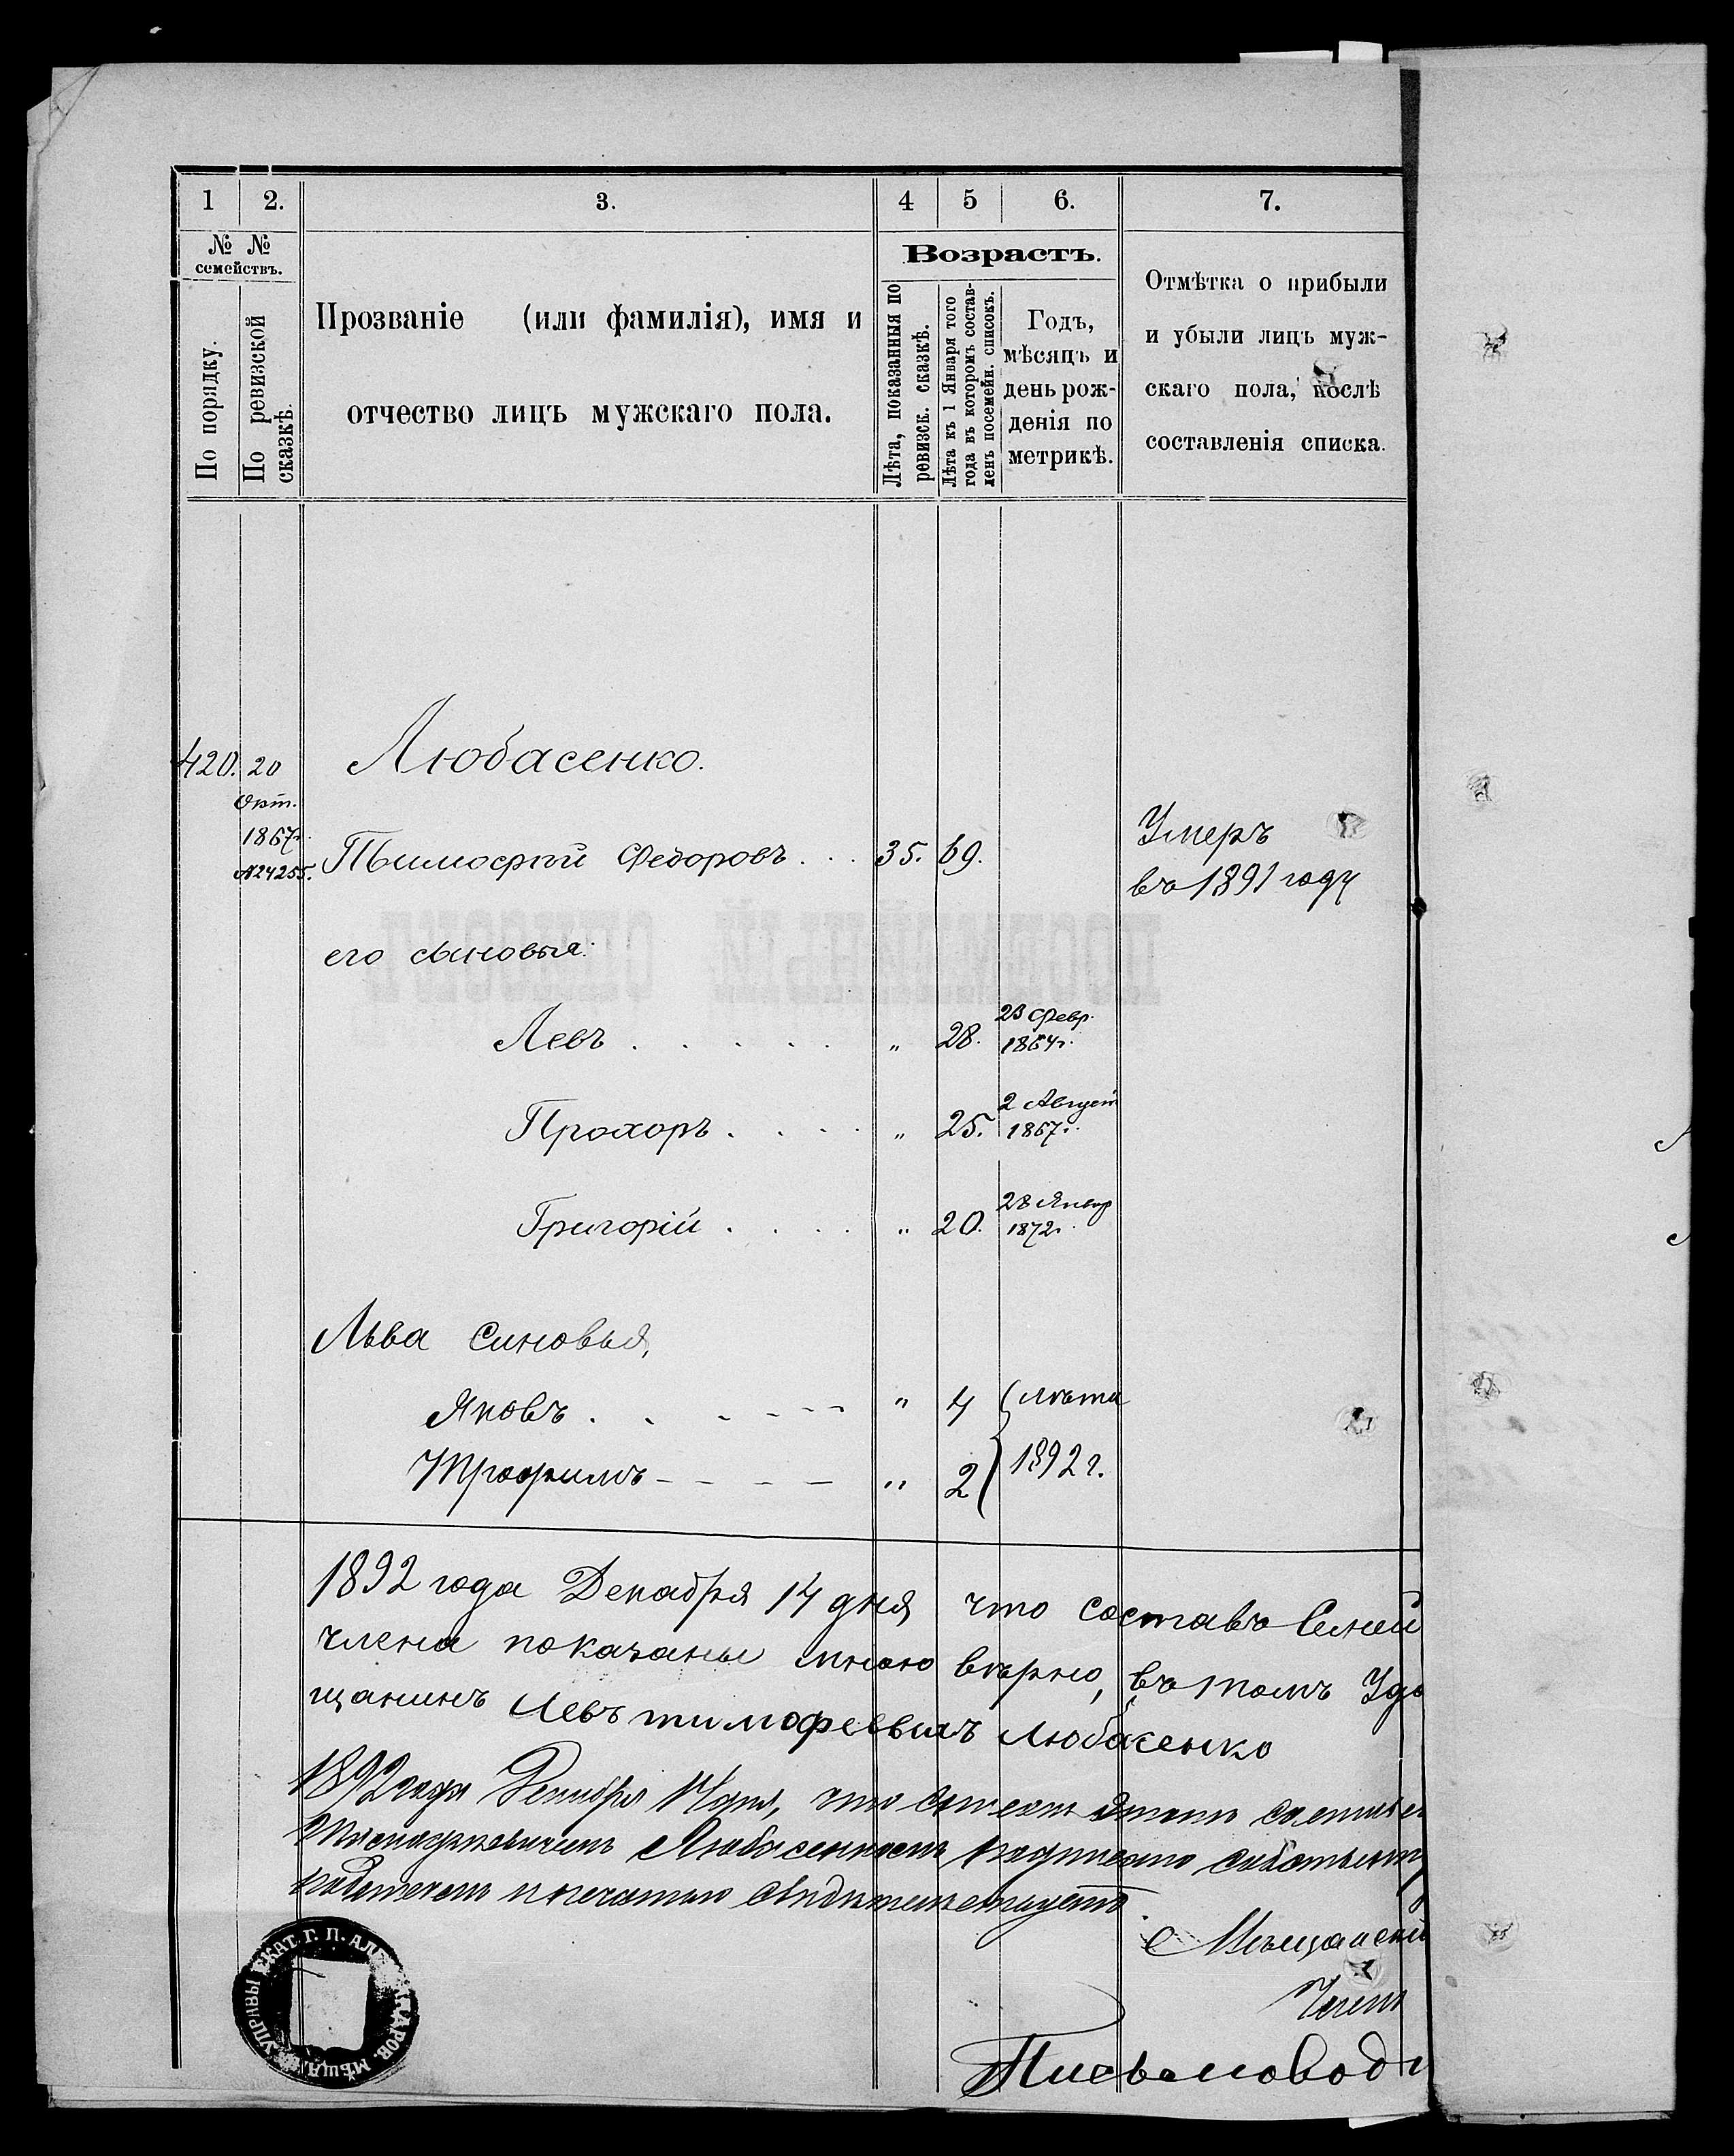 1 2. 3. 4 5 6. 7.
№ № семействъ.
По порядку.
По ревизской сказкѣ.
Прозваніе (или фамилія), имя и
отчество лицъ мужскаго пола.
Возрастъ.
Лѣта, показанныя по
ревизск. сказкѣ.
Лѣта къ 1 Января того
года въ которомъ состав-
ленъ посемейн. списокъ.
Годъ,
мѣсяцъ и
день рож-
денія по
метрикѣ.
Отмѣтка о прибыли
и убыли лицъ муж-
скаго пола, послѣ
составленія списка.
420. 20 Любасенко.
Окт.
1867г.
№24255. Тимофѣй Федоровъ . . . 35. 69. Умеръ
въ 1891 году
его сыновья:
Левъ . . . . . „ 28. 23 Февр.
1864г.
Прохоръ . . . . „ 25. 2 Август
1867г.
Григорій . . . . „ 20. 28 Янвр
1872г.
Льва Синовья,
Яковъ . . . - - - „ 4 лѣта
Трофимъ - - - - „ 2 1892 г.
1892 года Декабря 14 дня что составъ Семей
члена показаны мною вѣрно, въ томъ Удо
щанинъ Левъ тимофеевичъ Любасенко
1892 года Декабря 14 дня, что
Любасенкомъ подписано собственно
печатью свидѣтельствуетъ
Мѣщанскій
Член
Письмовод
УПРАВЫ ЕКАТ. Г. П. АЛЕ АНДРОВ. МѢЩАН